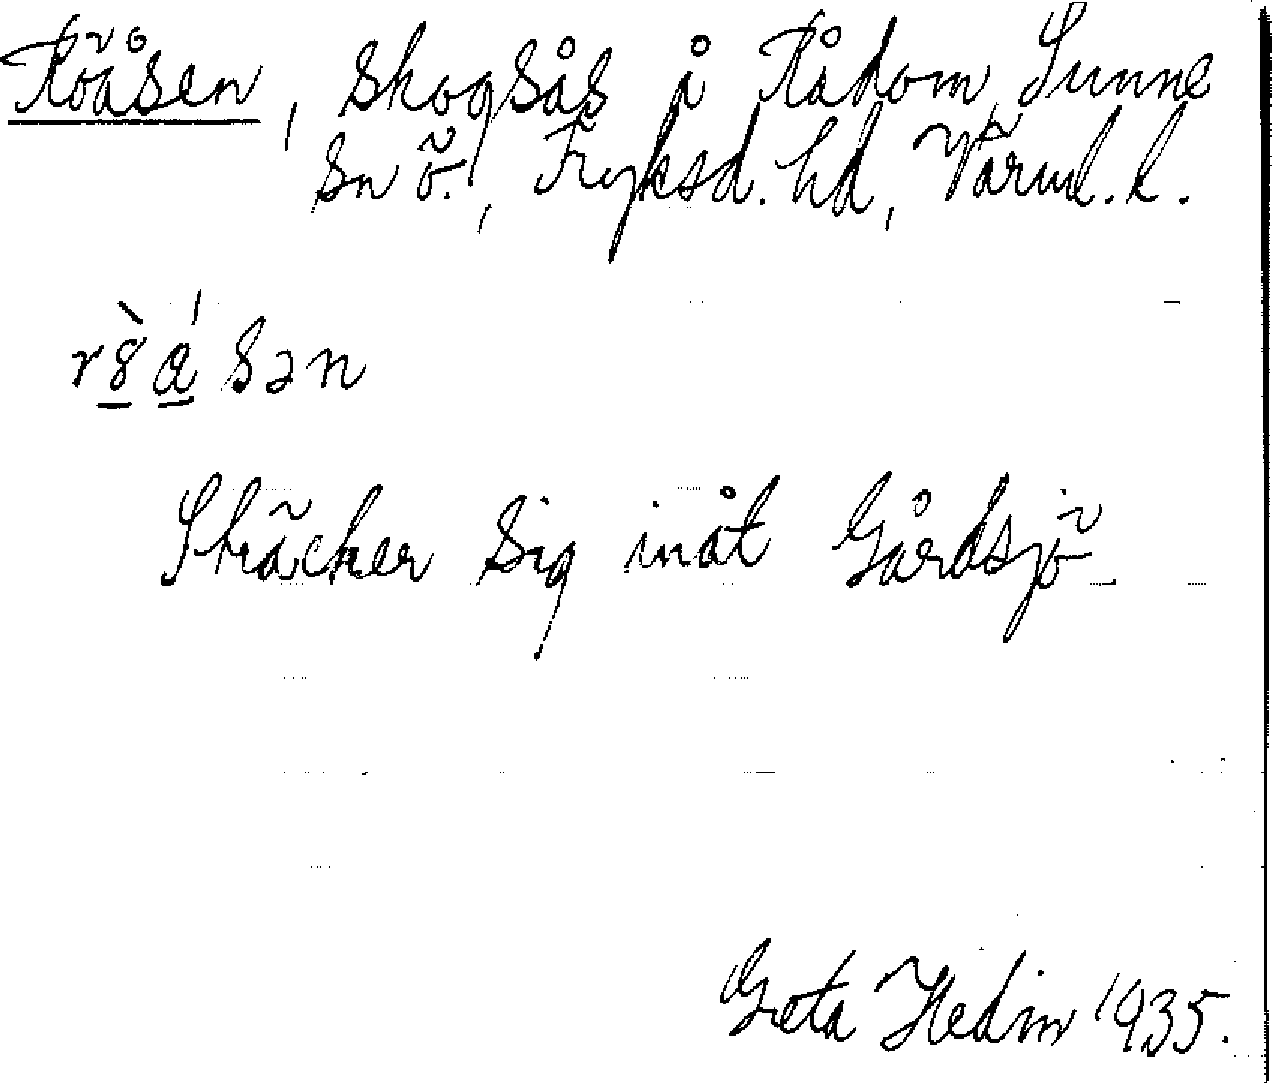 Röåsen, skogsås å Rådom, Sunne
sn ö., Fryksd. hd, Värml. l.
rȣ̀ɑ́sən
Sträcker sig inåt Gårdsjö
Greta Hedin 1935.